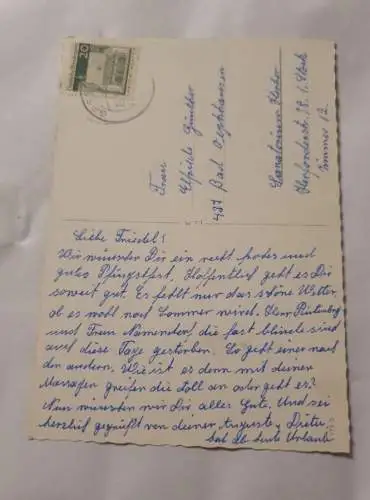 20
Frau
Elfriede Günther
497 Bad Oeynhausen
Sanatorium
Herforderstr.
Zimmer 12
Liebe Friedel!
Wir wünschen Dir ein recht frohes und
gutes Pfingstfest. Hoffentlich geht es Dir
soweit gut. Es fehlt nur das schöne Wetter,
ob es wohl noch Sommer wird. Herr
und Frau die fast blinde sind
auch diese Tage gestorben. So geht einer nach
den andern. Wie ist es denn mit deinen
Massagen greifen die toll an oder geht es?
Nun wünschen wir Dir alles Gute. Und sei
herzlich gegrüßt von deiner Auguste u. Dieter
hat ab heute Urlaub